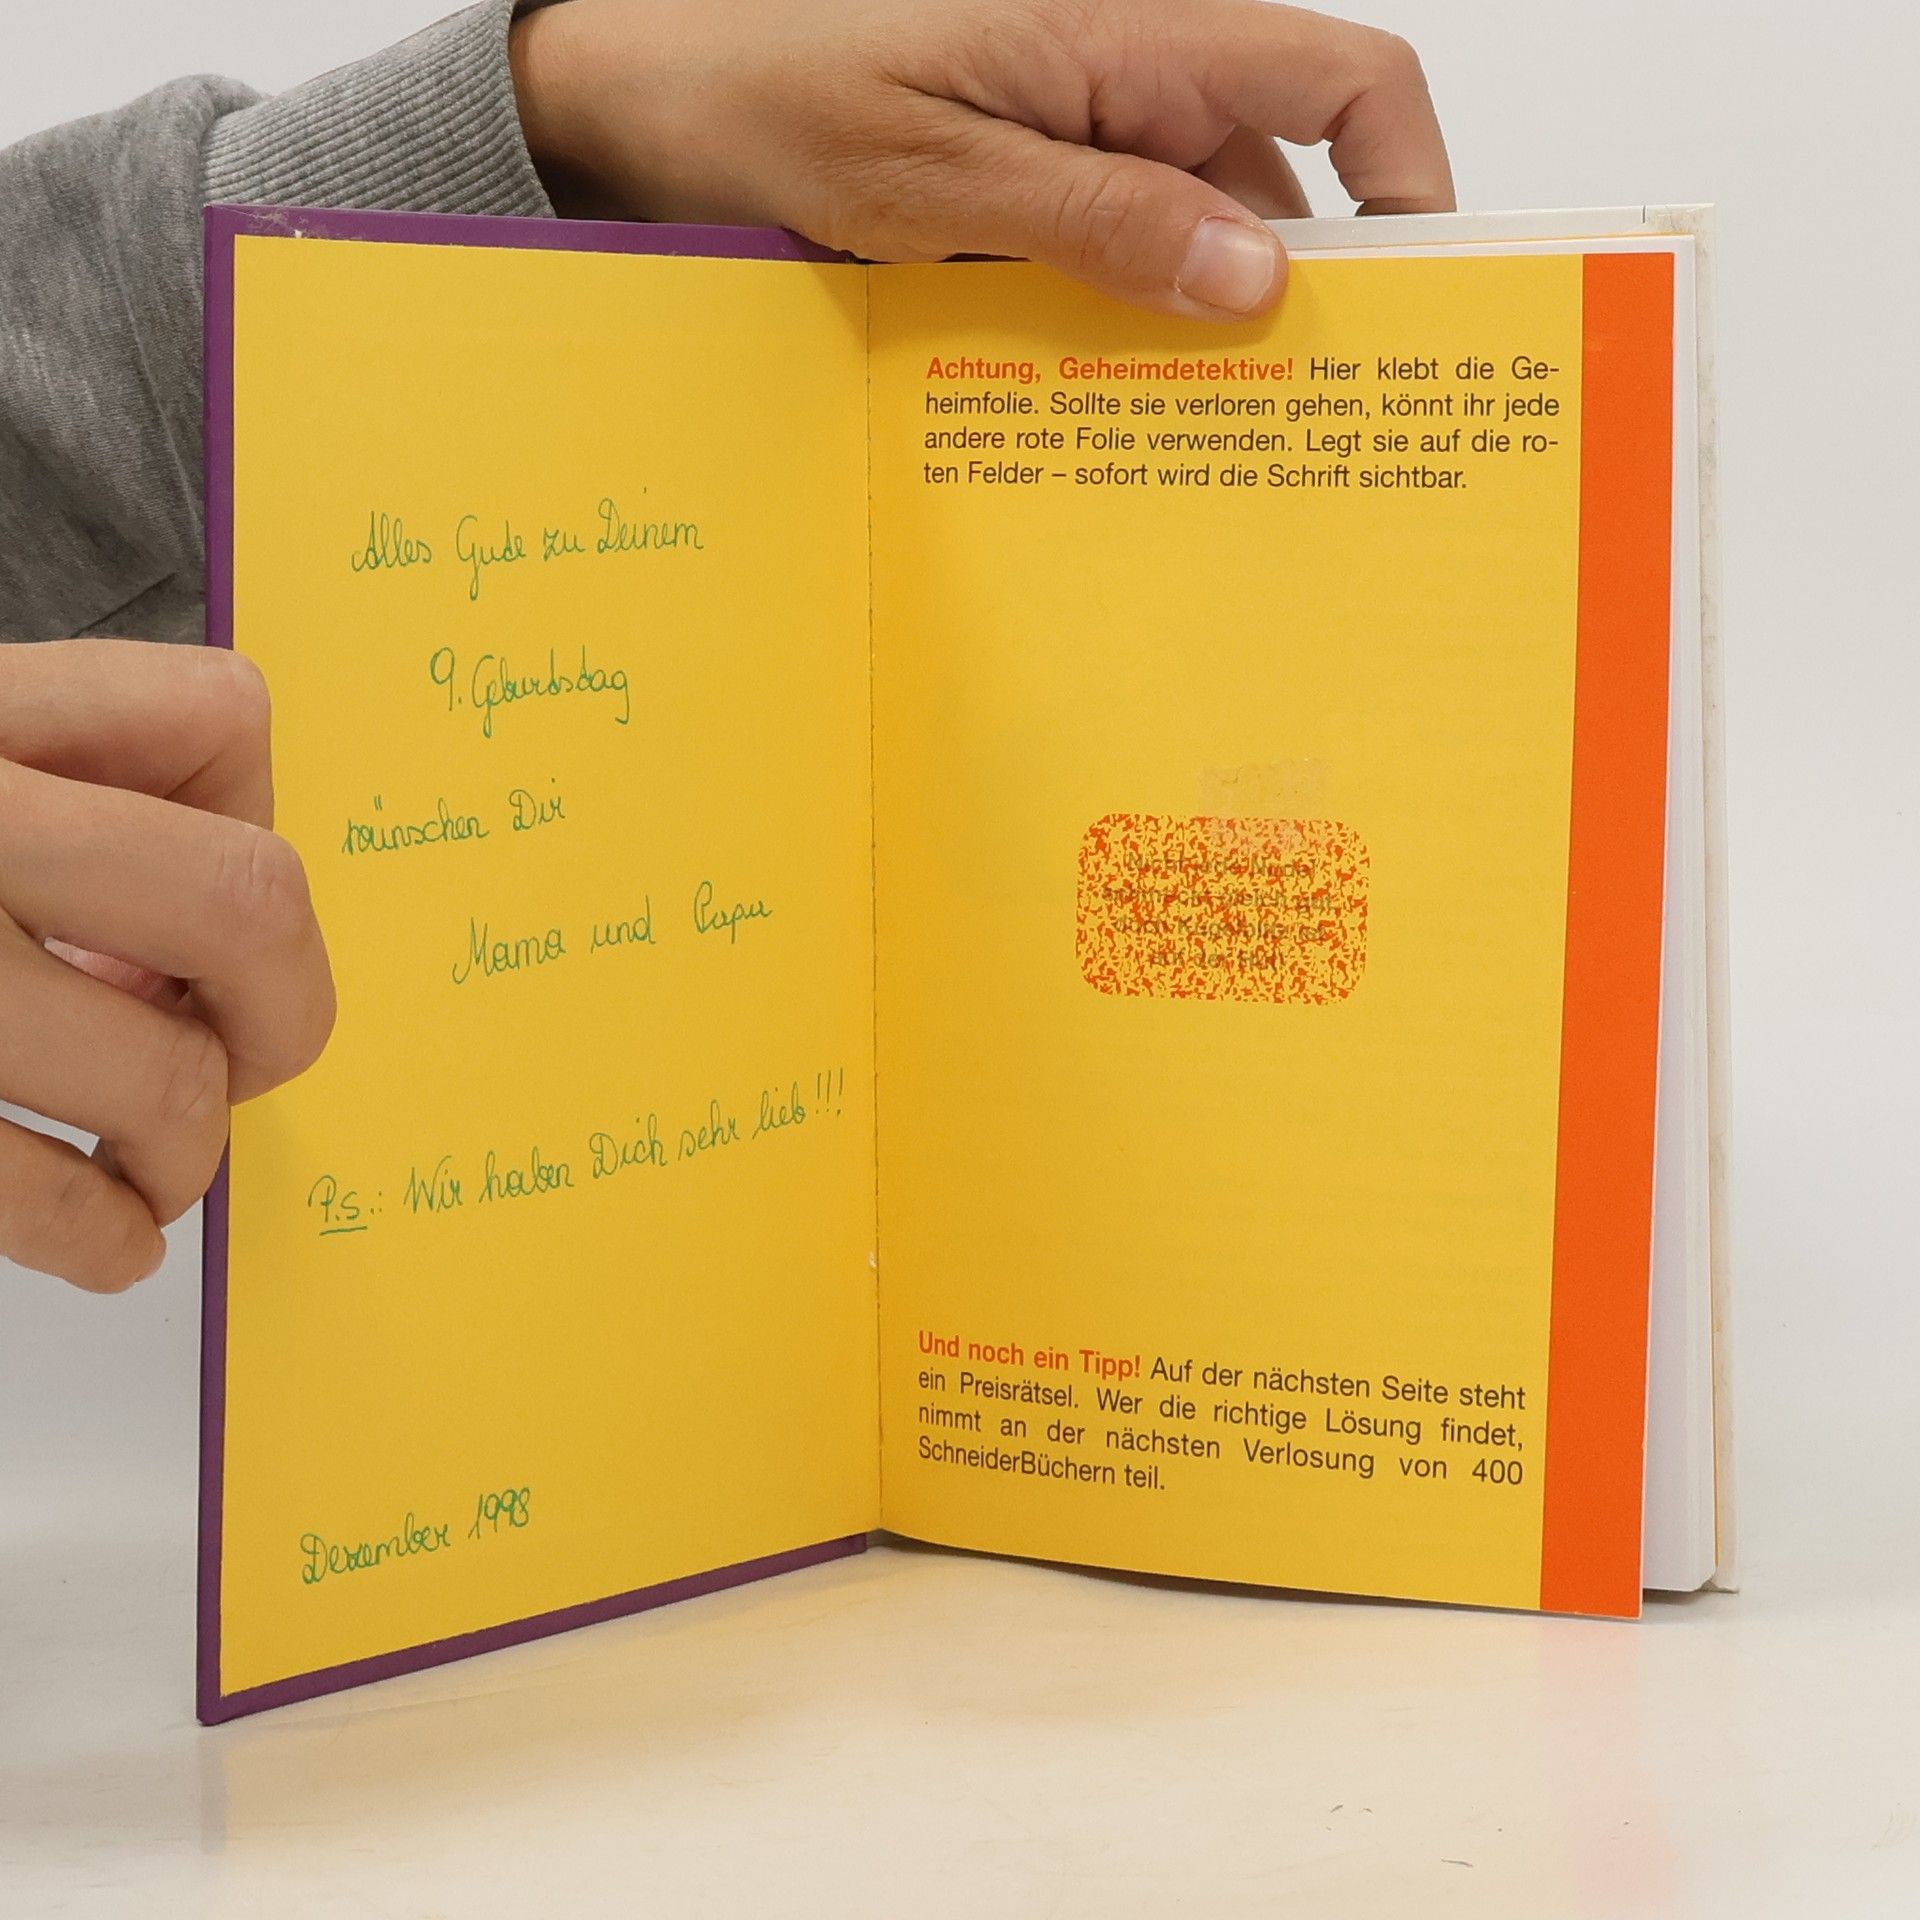 Alles Gute zu Deinem
9. Geburtstag
wünschen Dir
Mama und Papa
P.S.: Wir haben Dich sehr lieb!!!
Dezember 1998
Achtung, Geheimdetektive! Hier klebt die Ge-
heimfolie. Sollte sie verloren gehen, könnt ihr jede
andere rote Folie verwenden. Legt sie auf die ro-
ten Felder – sofort wird die Schrift sichtbar.
Und noch ein Tipp! Auf der nächsten Seite steht
ein Preisrätsel. Wer die richtige Lösung findet,
nimmt an der nächsten Verlosung von 400
SchneiderBüchern teil.